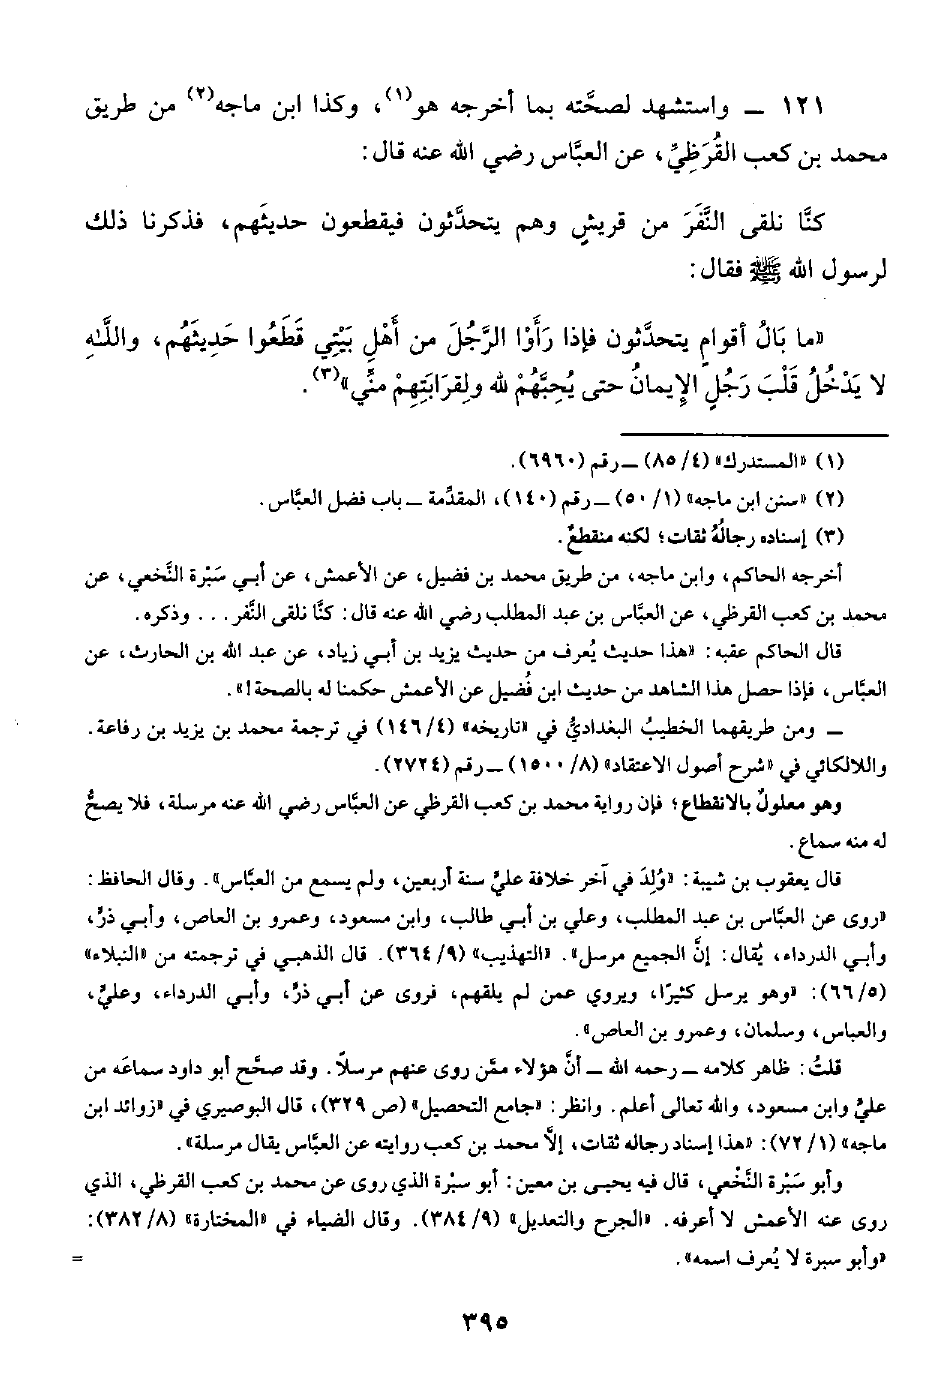 ١٢١ ــ واستشهد لصحَّته بما أخرجه هو(١)، وكذا ابن ماجه(٢) من طريق
محمد بن كعب القُرَظِيِّ، عن العبَّاس رضي الله عنه قال:
كنَّا نلقى النَّفَرَ من قريشٍ وهم يتحدَّثون فيقطعون حديثَهم، فذكرنا ذلك
لرسول الله ﷺ فقال:
«ما بَالُ أقوامٍ يتحدَّثون فإذا رَأَوْا الرَّجُلَ من أَهْلِ بَيْتِي قَطَعُوا حَدِيثَهُم، واللَّهِ
لا يَدْخُلُ قَلْبَ رَجُلٍ الإِيمانُ حتى يُحِبَّهُمْ لله ولِقرَابَتِهِمْ منِّي»(٣).
(١) «المستدرك» (٨٥/٤) ــ رقم (٦٩٦٠).
(٢) «سنن ابن ماجه» (٥٠/١) ــ رقم (١٤٠)، المقدِّمة ــ باب فضل العبَّاس.
(٣) إسناده رجالُهُ ثقات؛ لكنه منقطعٌ.
أخرجه الحاكم، وابن ماجه، من طريق محمد بن فضيل، عن الأعمش، عن أبي سَبْرة النَّخعي، عن
محمد بن كعب القرظي، عن العبَّاس بن عبد المطلب رضي الله عنه قال: كنَّا نلقى النَّفر . . . وذكره.
قال الحاكم عقبه: «هذا حديث يُعرف من حديث يزيد بن أبي زياد، عن عبد الله بن الحارث، عن
العبَّاس، فإذا حصل هذا الشاهد من حديث ابن فُضيل عن الأعمش حكمنا له بالصحة!».
ــ ومن طريقهما الخطيبُ البغداديُّ في «تاريخه» (١٤٦/٤) في ترجمة محمد بن يزيد بن رفاعة.
واللالكائي في «شرح أصول الاعتقاد» (١٥٠٠/٨) ــ رقم (٢٧٢٤).
وهو معلولٌ بالانقطاع؛ فإن رواية محمد بن كعب القرظي عن العبَّاس رضي الله عنه مرسلة، فلا يصحُّ
له منه سماع.
قال يعقوب بن شيبة: «وُلِدَ في آخر خلافة عليٍّ سنة أربعين، ولم يسمع من العبَّاس». وقال الحافظ:
«روى عن العبَّاس بن عبد المطلب، وعلي بن أبي طالب، وابن مسعود، وعمرو بن العاص، وأبي ذرٍّ،
وأبي الدرداء، يُقال: إنَّ الجميع مرسل». «التهذيب» (٣٦٤/٩). قال الذهبي في ترجمته من «النبلاء»
(٦٦/٥): «وهو يرسل كثيرًا، ويروي عمن لم يلقهم، فروى عن أبي ذرٍّ، وأبي الدرداء، وعليٍّ،
والعباس، وسلمان، وعمرو بن العاص».
قلتُ: ظاهر كلامه ــ رحمه الله ــ أنَّ هؤلاء ممَّن روى عنهم مرسلاً. وقد صحَّح أبو داود سماعَه من
عليٍّ وابن مسعود، والله تعالى أعلم. وانظر: «جامع التحصيل» (ص ٣٢٩)، قال البوصيري في «زوائد ابن
ماجه» (٧٢/١): «هذا إسناد رجاله ثقات، إلاَّ محمد بن كعب روايته عن العبَّاس يقال مرسلة».
وأبو سَبْرة النَّخْعي، قال فيه يحيى بن معين: أبو سبْرة الذي روى عن محمد بن كعب القرظي، الذي
روى عنه الأعمش لا أعرفه. «الجرح والتعديل» (٣٨٤/٩). وقال الضياء في «المختارة» (٣٨٢/٨):
«وأبو سبرة لا يُعرف اسمه». =
٣٩٥